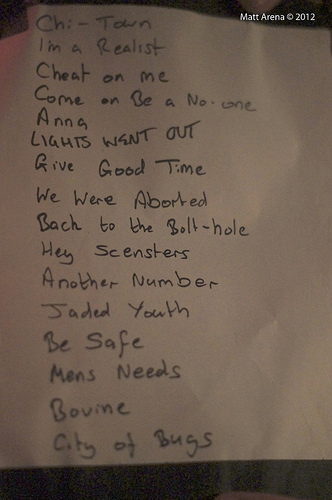 Matt Arena © 2012
Chi-Town
I'm a Realist
Cheat on me
Come on Be a No-one
Anna
LIGHTS WENT OUT
Give Good Time
We Were Aborted
Back to the Bolt-hole
Hey Scensters
Another Number
Jaded Youth
Be Safe
Mens Needs
Bovine
City of Bugs